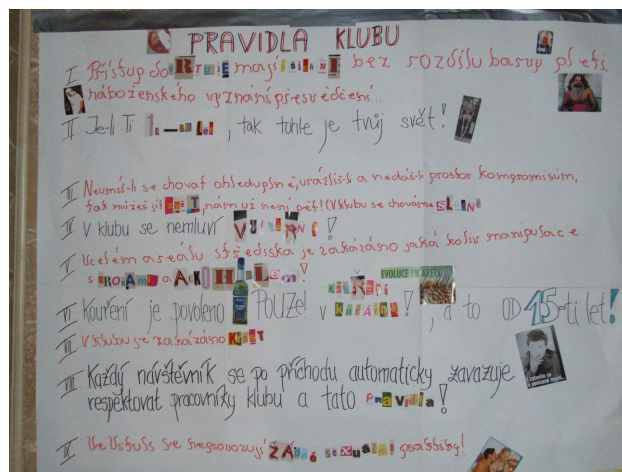 PRAVIDLA KLUBU
I Přístup do VRTULE mají všichni bez rozdílu barvy pleti,
náboženského vyznání, přesvědčení...
II Je-li Ti let, tak tohle je tvůj svět!
III Neumíš-li se chovat ohleduplně, urážíš-li a nedáš-li prostor kompromisům,
tak můžeš jít, nám už není pět! (V klubu se chováme SLUŠNĚ
IV V klubu se nemluví VULGÁRNĚ!
V V celém areálu střediska je zakázáno jaká koliv manipulace
s DROGAMI a ALKOHOLEM!
EVOLUCE CIGARETY
VI Kouření je povoleno POUZE v KUŘÁRNĚ!, a to OD 15-ti let!
VII V klubu je zakázáno KOUŘIT
VIII Každý návštěvník se po příchodu automaticky zavazuje
respektovat pracovníky klubu a tato pravidla!
IX se neprovozují ŽÁDNÉ sexuální praktiky!